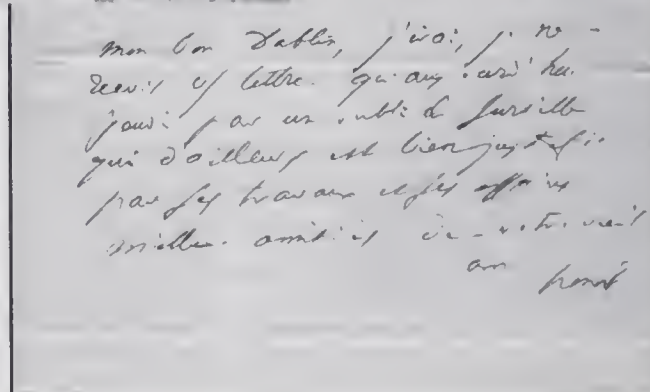 mon bon Dablin, j'irai, je ne
recois v/ lettre qu'aujourd'hui
jeudi par un oubli de Surville
qui d'ailleurs est bien justifié
par ses travaux et ses affaires
mille amitiés de votre vieil
ami